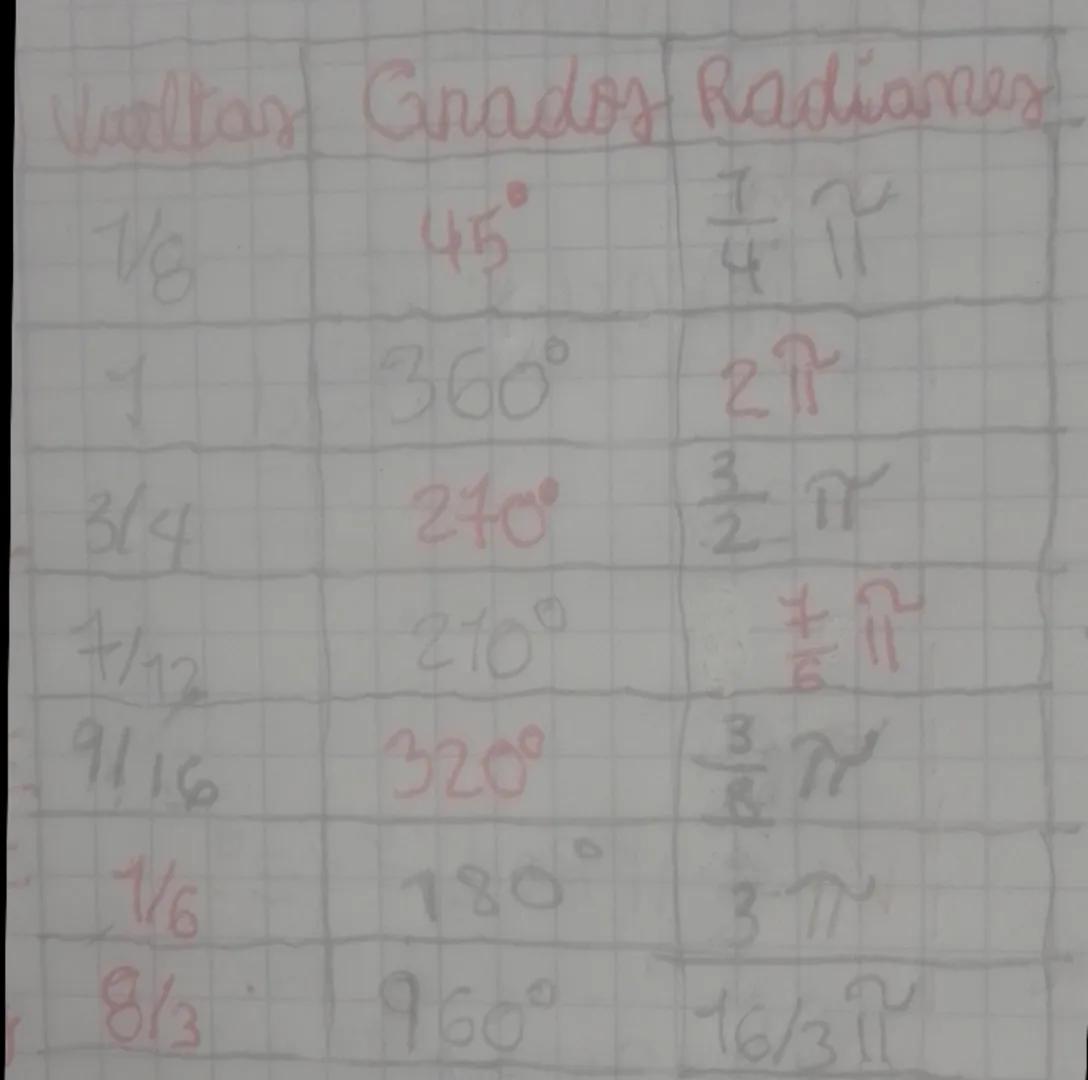 Vueltas Grados Radianes
1/8 45° 1/4 π
1 360° 2π
3/4 270° 3/2 π
7/12 210° 7/6 π
9/16 320° 3/8 π
1/6 180° 3π
8/3 960° 16/3π